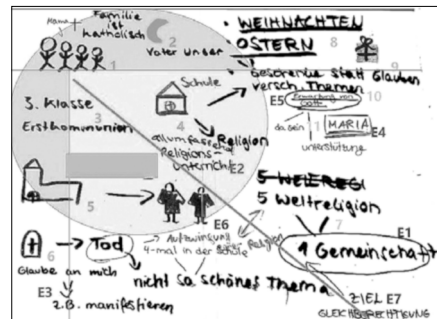 Mama
Familie
ist
katholisch
1
2
Vater Unser
• WEIHNACHTEN
• OSTERN
8
9
Geschenke statt Glauben
versch. Themen
E5
10
Gott
da sein
11
MARIA
E4
unterstützung
Schule
3. Klasse
3
Erstkommunion
4
Religion
Religions-
unterricht
E2
5
E6
5 WELTREGI
5 Weltreligion
7
E1
1 Gemeinschaft
6
Tod
Aufzwingung
4-mal in der Schule
Religion
Glaube an mich
E3
z.B. manifestieren
nicht so schönes Thema
ZIEL E7
GLEICHBERECHTIGUNG